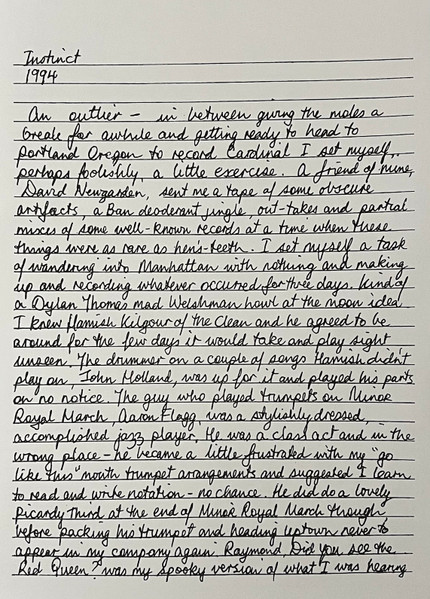 Instinct
1994
An outlier – in between giving the moles a
break for awhile and getting ready to head to
Portland Oregon to record Cardinal I set myself,
perhaps foolishly, a little exercise. A friend of mine,
David Newgarden, sent me a tape of some obscure
artifacts, a Ban deoderant jingle, out-takes and partial
mixes of some well-known records at a time when these
things were as rare as hen's-teeth. I set myself a task
of wandering into Manhattan with nothing and making
up and recording whatever occurred for three days. Kind of
a Dylan Thomas mad Welshman howl at the moon idea.
I knew Hamish Kilgour of the Clean and he agreed to be
around for the few days it would take and play sight
unseen. The drummer on a couple of songs Hamish didn't
play on, John Holland, was up for it and played his parts
on no notice. The guy who played trumpets on Minor
Royal March, Aaron Flagg, was a stylishly dressed,
accomplished jazz player. He was a class act and in the
wrong place – he became a little frustrated with my "go
like this" mouth trumpet arrangements and suggested I learn
to read and write notation – no chance. He did do a lovely
picardy third at the end of Minor Royal March though
before packing his trumpet and heading uptown never to
appear in my company again. Raymond, Did you see the
Red Queen? was my spooky version of what I was hearing